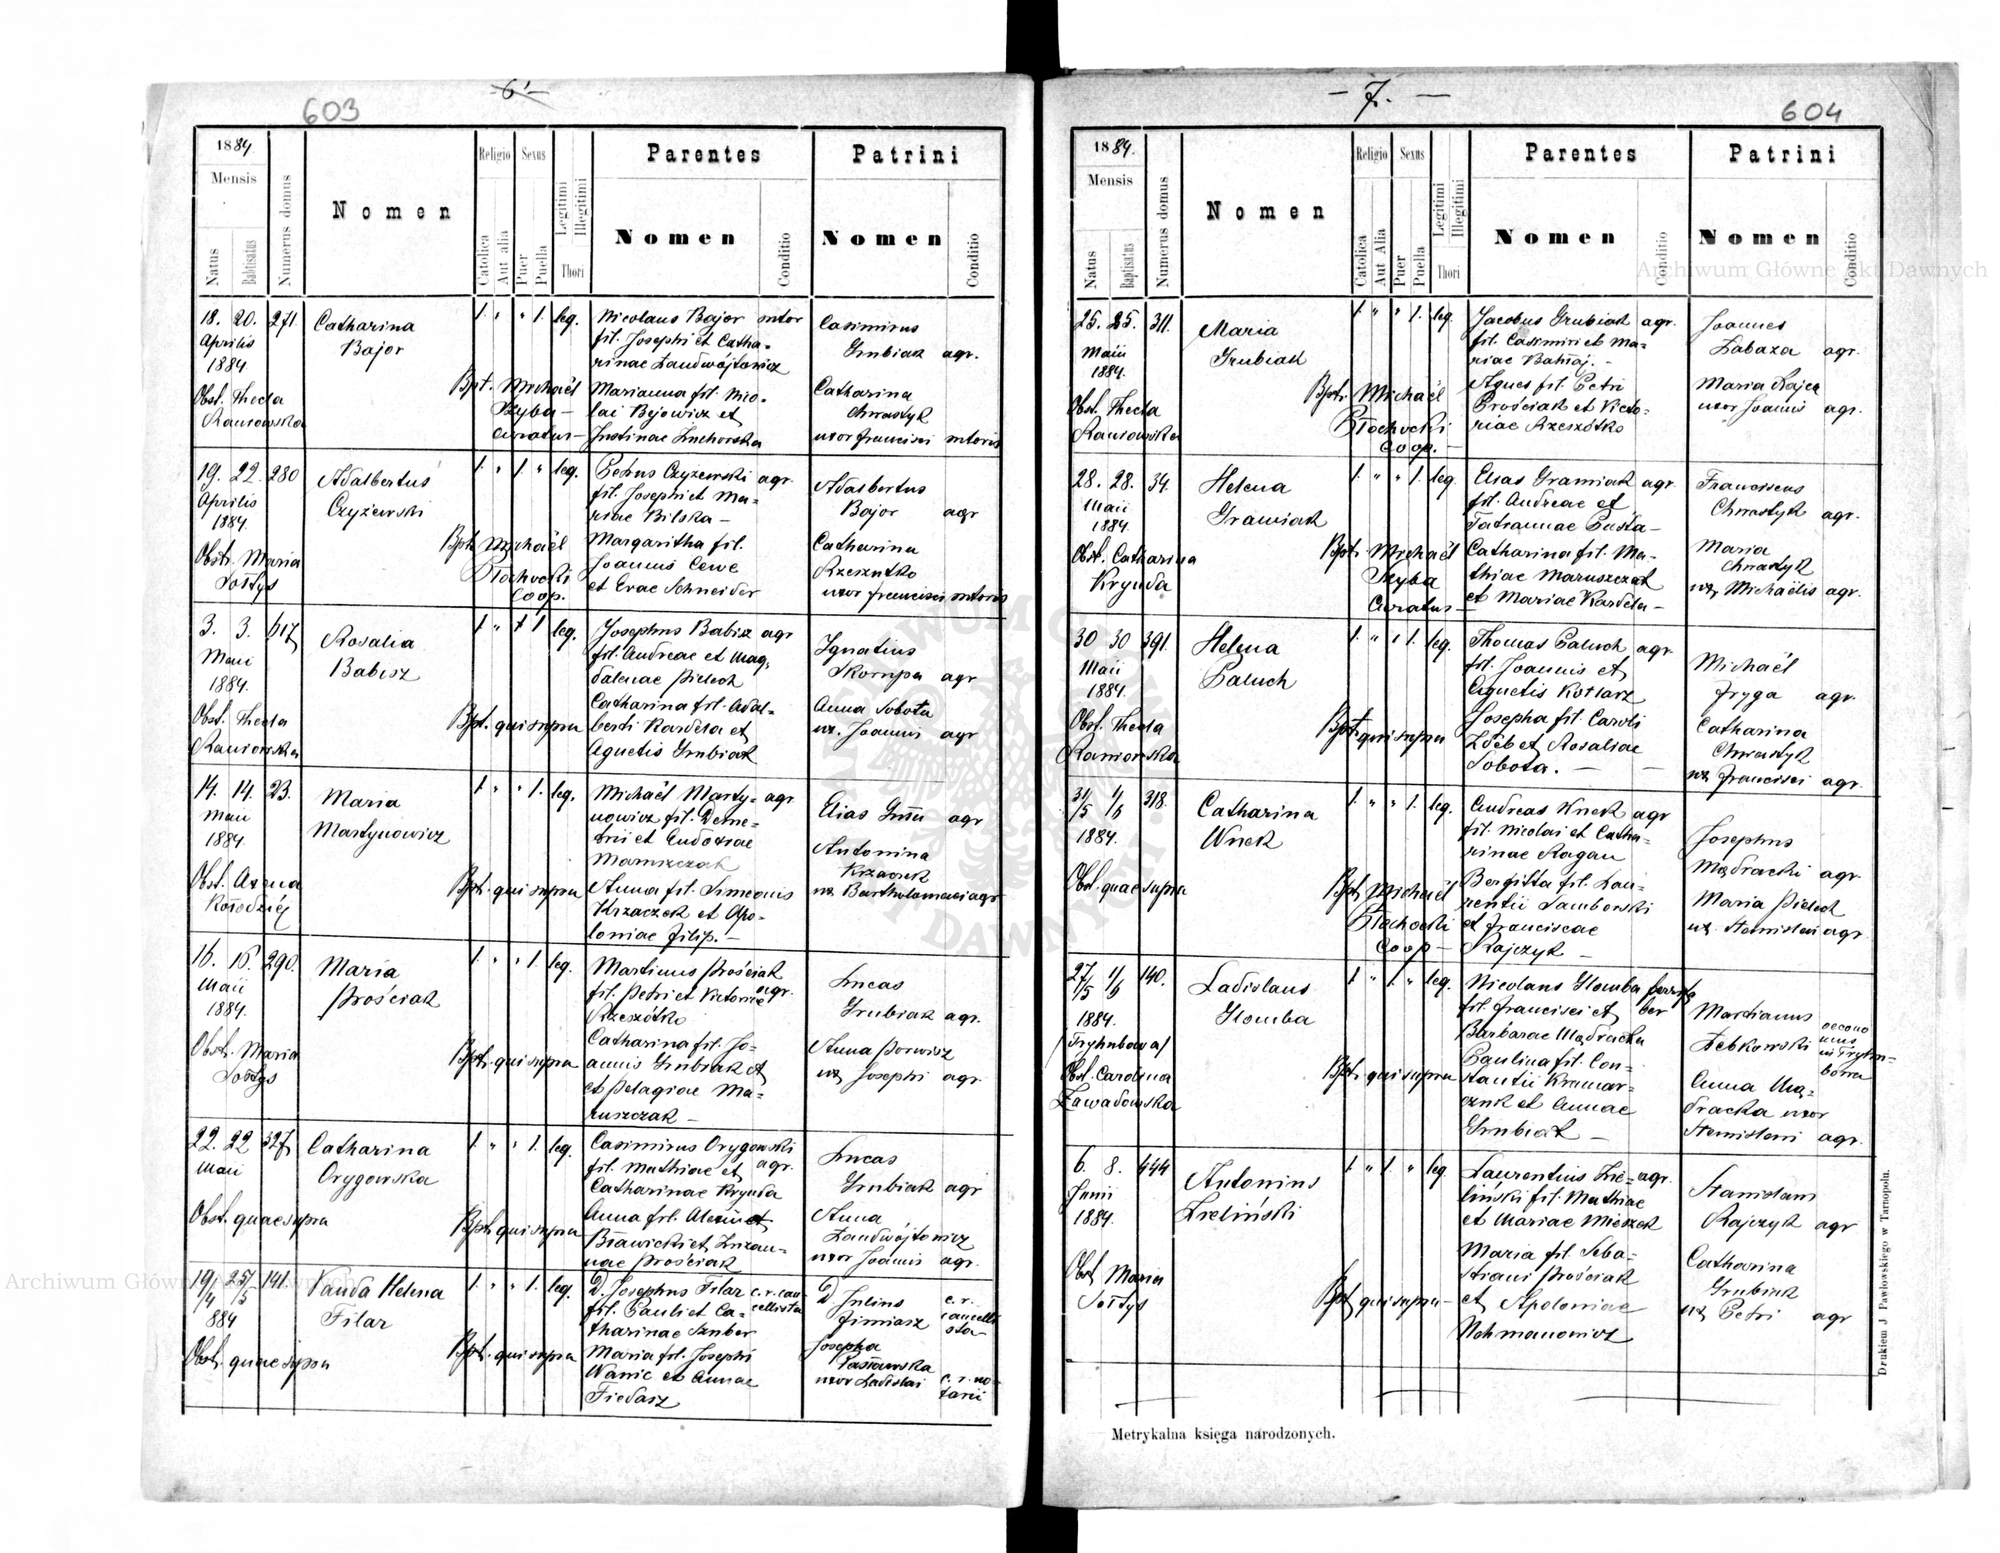 603
6
1884.
Mensis
Natus
Babtisatus
Numerus domus
Nomen
Religio
Catolica
Aut alia
Sexus
Puer
Puella
Legitimi
Illegitimi
Thori
Parentes
Nomen
Conditio
Patrini
Nomen
Conditio
18. 20. 271. Catharina 1. " " 1. leg. Nicolaus Bajor sutor Casimirus
Aprilis Bajor fil. Josephi et Catha- Grubiak agr.
1884. rinae Landwójtowicz
Obst. Thecla Bpt. Michaël Marianna fil. Nico- Catharina
Raniowska Ryba - lai Bejowicz et Chrastyk
Curatus - Justinae Zuchorska uxor Francisci sutoris
19. 22. 280 Adalbertus 1. " 1. " leg. Petrus Czyżewski agr. Adalbertus
Aprilis Czyżewski fil. Josephi et Ma- Bajor agr
1884. riae Bilska -
Obst. Maria Bpt. Michaël Margaritha fil. Catharina
Sołtys Płochocki Joannis Cewe Rzeszutko
Coop. et Evae Schneider uxor Francisci sutoris
3. 3. 617 Rosalia 1 " 1 1 leg. Josephus Babisz agr Ignatius
Maii Babisz fil. Andreae et Mag- Skorupa agr
1884. dalenae Pielech
Obst. Thecla Bpt. qui supra Catharina fil. Adal- Anna Sobota
Raniowska berti Kardela et ux. Joannis agr
Agnetis Grubiak
14. 14. 23. Maria 1. " " 1. leg. Michaël Marty- agr Elias agr
Maii Martynowicz nowicz fil. Deme-
1884. trii et Eudoxiae Antonina
Maruszczak Krzaczek
Obst. Bpt. qui supra Anna fil. Simeonis ux. Bartholomaei agr
Kołodziej Krzaczek et Apo-
loniae Filip. -
16. 16. 290. Maria 1. " " 1. leg. Martinus Prościak Lucas
Maii Prościak fil. Petri et Victoriae agr. Grubiak agr.
1884. Rzeszótko
Obst. Maria Bpt. qui supra Catharina fil. Jo- Anna
Sołtys annis Grubiak et ux. Josephi agr.
et Pelagiae Ma-
ruszczak -
22. 22 327 Catharina 1. " " 1. leg. Casimirus Orygowski Lucas
Maii Orygowska fil. Mathiae et agr. Grubiak agr
Catharinae Krynda
Obst. quae supra Bpt. qui supra Anna fil. Anna
Bławicki et Zuzan- Landwójtowicz
nae Prościak uxor Joannis agr.
19/4 25/5 141. Vanda Helena 1. " " 1. leg. D. Josephus Filar c. r. can- D Julius c. r.
884 Filar fil. Pauli et Ca- cellista Zimiasz cancelli
tharinae Szuber sta-
Obst. quae supra Bpt. qui supra Maria fil. Josephi Josepha
Wanic et Annae Pasławska
Fiedasz uxor Ladislai c. r. no-
tarii
- 7. -
604
1884.
Mensis
Natus
Baptisatus
Numerus domus
Nomen
Religio
Catolica
Aut Alia
Sexus
Puer
Puella
Legitimi
Illegitimi
Thori
Parentes
Nomen
Conditio
Patrini
Nomen
Conditio
25. 25. 311. Maria 1. " " 1. leg. Jacobus Grubiak agr. Joannes
Maii Grubiak fil. Casimiri et Ma- Łabaza agr.
1884. riae
Obst. Thecla Bpt. Michaël Agnes fil. Petri Maria Rajca
Raniowska Płochocki Prościak et Victo- uxor Joannis agr.
Coop. - riae Rzeszótko
28. 28. 34. Helena 1. " " 1. leg. Elias Gramiak agr. Franciscus
Maii Gramiak fil. Andreae et Chrastyk agr.
1884. Tatiannae Pusta-
Obst. Catharina Bpt. Michaël Catharina fil. Ma- Maria
Krynda Ryba thiae Maruszczak Chrastyk
Curatus - et Mariae Kardela - ux. Michaëlis agr.
30 30 391. Helena 1. " " 1. leg. Thomas Paluch agr. Michaël
Maii Paluch fil. Joannis et Fryga agr.
1884. Agnetis Kotlarz
Obst. Thecla Bpt. qui supra Josepha fil. Caroli Catharina
Raniowska Zdeb et Rosaliae Chrastyk
Sobota. - ux. Francisci agr.
31/5 1/6 318. Catharina 1. " " 1. leg. Andreas Wnek agr Josephus
1884. Wnek fil. Nicolai et Catha- Mądracki agr.
rinae Ragan
Obst. quae supra Bpt. Michaël Bergitta fil. Lau- Maria Pielech
Płochocki rentii Samborski ux. Stanislai agr.
Coop - et Franciscae
Rajczyk -
27/5 1/6 140. Ladislaus 1 " 1. " leg. Nicolaus Głomba ferri fa Martianus oecono
1884. Głomba fil. Francisci et ber Debkowski mus
/Tryhubowa/ Barbarae Mądracka in Tryhu-
bowa
Obst. Carolina Bpt. qui supra Paulina fil. Con- Anna Mą-
Zawadowska stantii Kramar- dracka uxor
czuk et Annae Stanislai agr.
Grubiak -
6. 8. 444 Antonius 1 " 1. " leg. Laurentius Zie- agr. Stanislaus
Junii Zieliński liński fil. Mathiae Rajczyk agr
1884. et Mariae Mieszek
Obst Maria Bpt. qui supra - Maria fil. Seba- Catharina
Sołtys stiani Prościak Grubiak
et Apoloniae ux. Petri agr
Nohmanowicz
Metrykalna księga narodzonych.
Drukiem J Pawłowskiego w Tarnopolu.
Archiwum Główne Akt Dawnych
Archiwum Główne Akt Dawnych